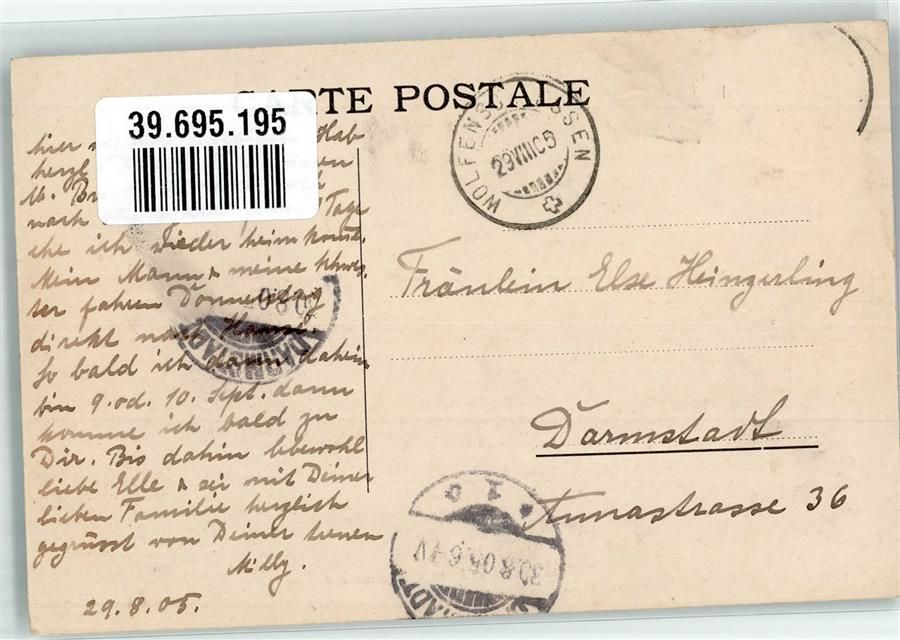 CARTE POSTALE
39.695.195
WOLFENS SSEN
29 VIII 05
hier Hab
herzl
M. Br
nach Tage
ehe ich wieder heim komme.
Mein Mann & meine Schwes-
ter fahren Donnerstag
direkt nach
So bald ich dann daheim
bin 9. od. 10. Sept. dann
komme ich bald zu
Dir. Bis dahin lebewohl
liebe Elle & sei mit Deiner
lieben Familie herzlich
gegrüsst von Deiner treuen
Milly.
29.8.05.
Fräulein Else Heinzerling
Darmstadt
Annastrasse 36
DARMSTADT
30.8.05
30.8.05.6-7V